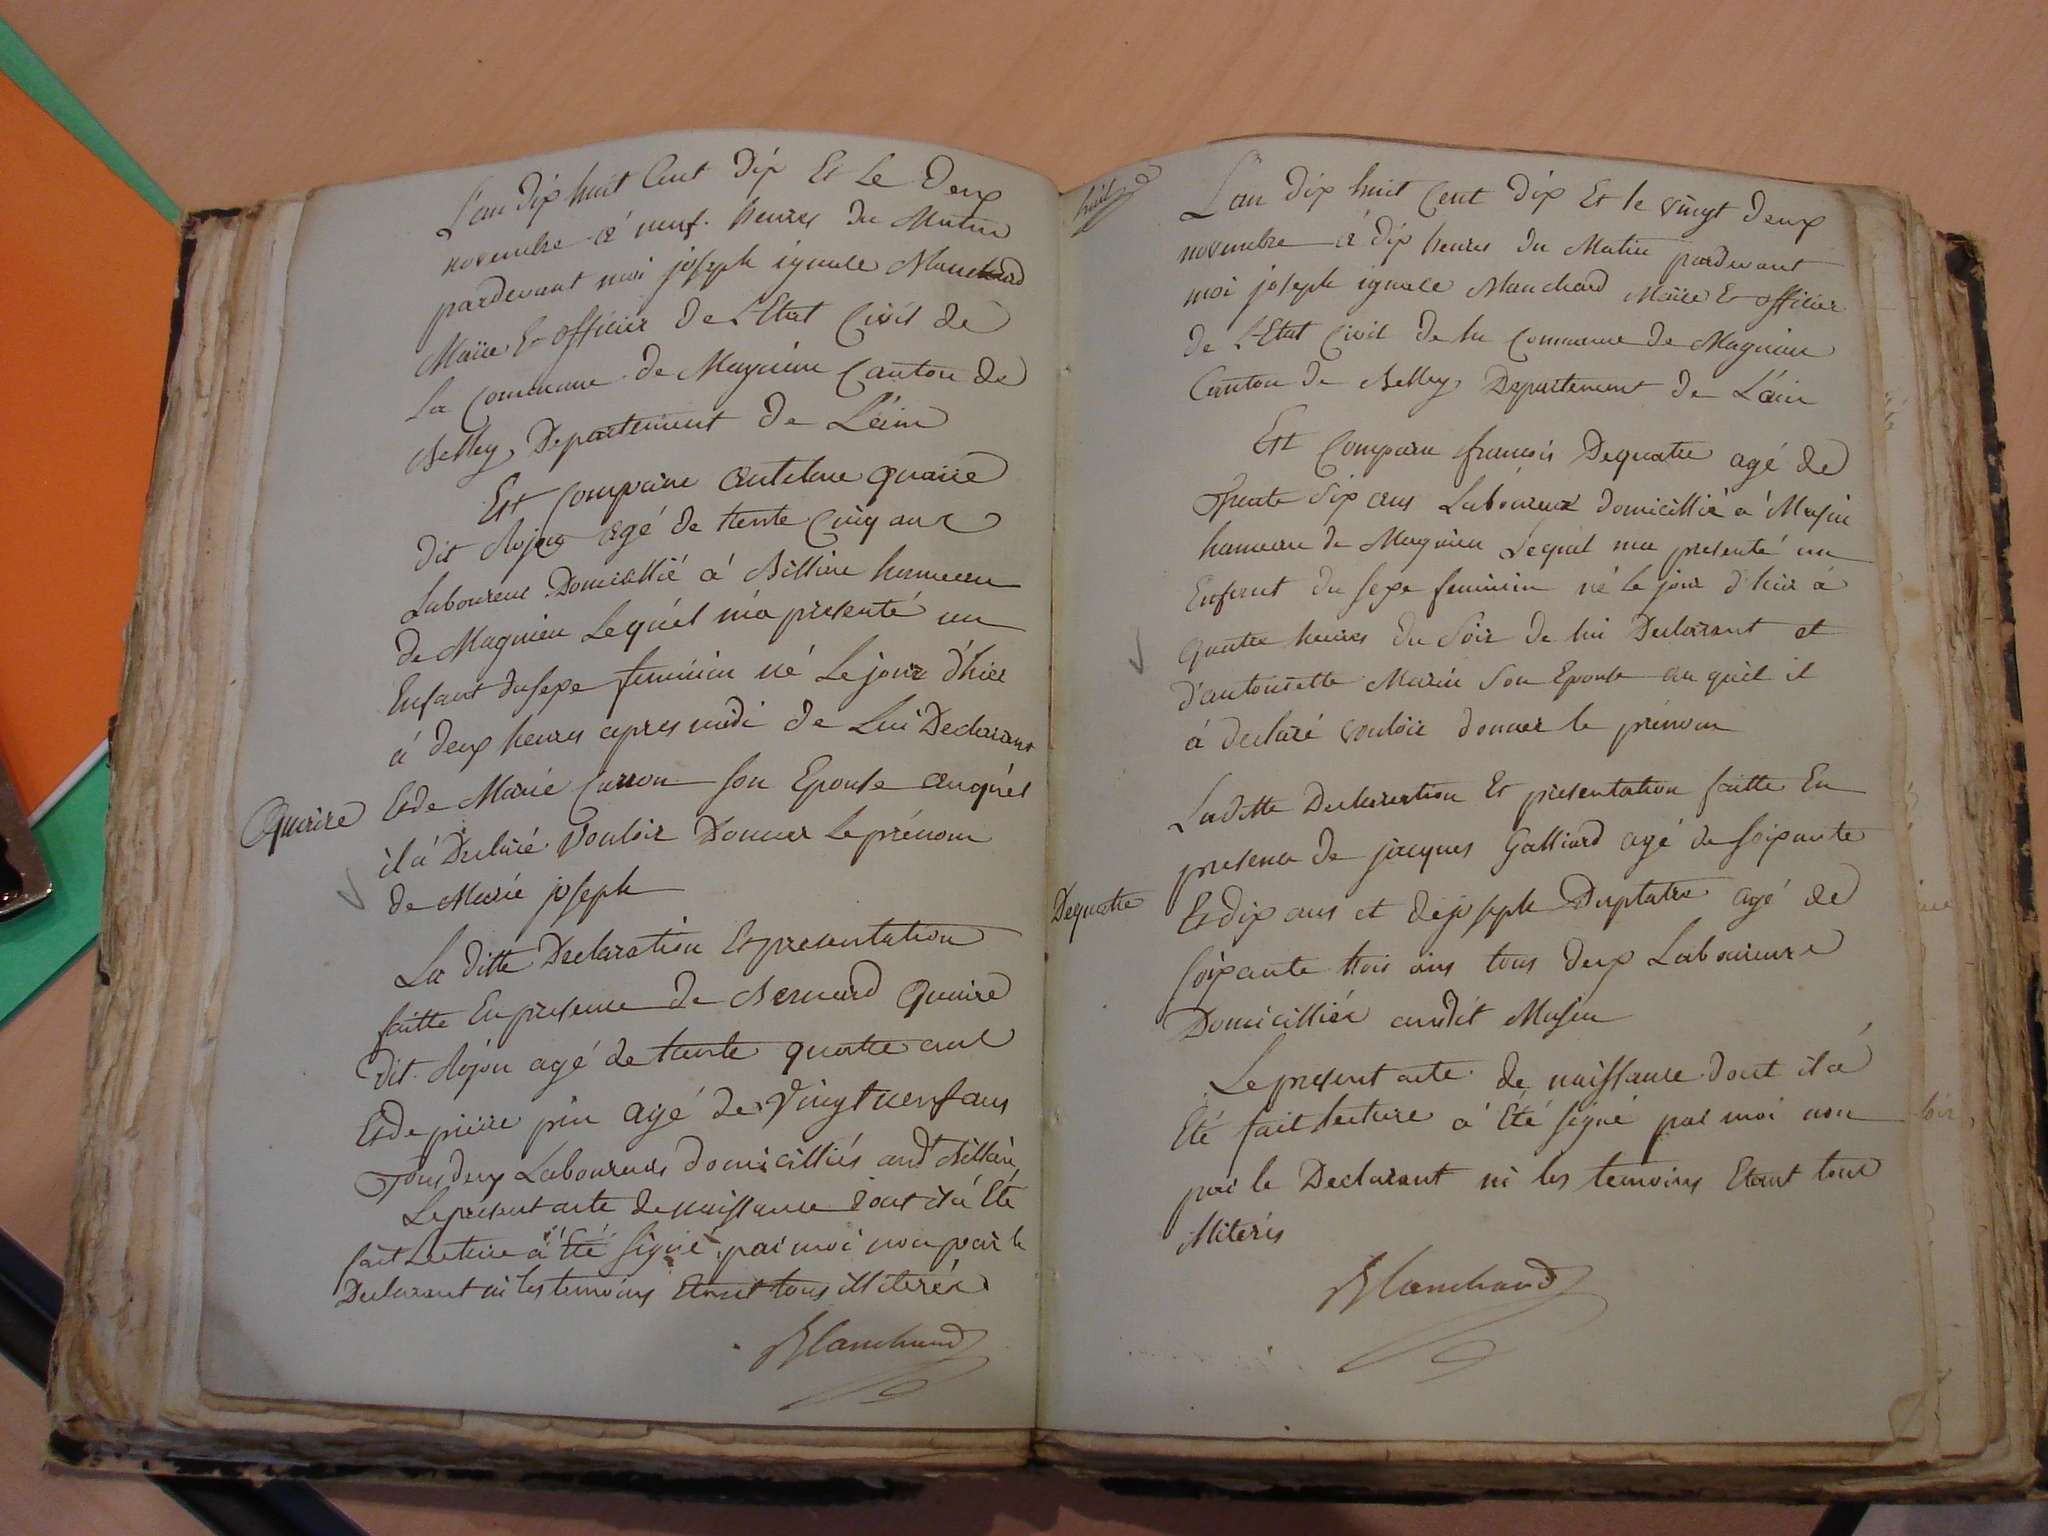 L'an dix huit Cent Dix Et Le Deux
novembre à neuf heures du Matin
pardevant moi joseph ignace Blanchard
Maire Et officier De L'Etat Civil de
La Commune de Magnieu Canton de
Belley, Departement De L'ain
Est Comparu antelme Quaire
dit Rojon agé de trente Cinq ans
Laboureur Domicillié à Billieu hameau
de Magnieu Lequel m'a presenté un
Enfant du sexe feminin né Le jour d'hier
à deux heures apres midi de Lui Declarant
Et de Marie Carron son Epouse auquel
il à Declaré Vouloir Donner Le prénom
de Marie joseph
La ditte Declaration Et presentation
faitte En presence de Bernard Quaire
dit Rojon agé de trente quatre ans
Et de pierre agé de Vingt neuf ans
Tous deux Laboureurs domicilliés aud Billieu
Le présent acte de naissance dont il à Eté
fait Lecture à Eté signé par moi non par le
Declarant ni les temoins Etant tous illiterés
Blanchard
Quaire
huit
L'an dix huit Cent dix Et le vingt deux
novembre à dix heures du Matin pardevant
moi joseph ignace Blanchard Maire Et officier
de L'Etat Civil de la Commune de Magnieu
Canton de Belley Departement de L'ain
Est Comparu françois Dequatre agé de
Trente six ans Laboureur domicillié à Musin
hameau de Magnieu Lequel ma presenté un
Enfant du sexe feminin né le jour d'hier à
quatre heures du Soir de lui Declarant et
d'antoinette Marin son Epouse au quel il
à declaré vouloir donner le prénom
Laditte Declaration Et presentation faitte En
presence de jacques Galliard agé de soixante
Et dix ans et de joseph agé de
soixante trois ans tous deux Laboureurs
Domicilliés audit Musin
Le present acte de naissance dont il à
Eté fait Lecture à Eté signé par moi non
par le Declarant ni les temoins Etant tous
illiterés
Blanchard
Dequatre